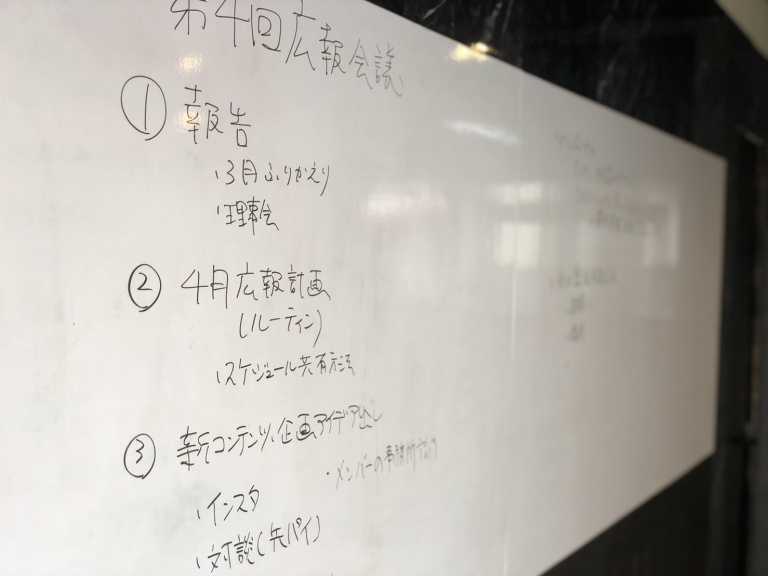 第4回広報会議
① 報告
・3月ふりかえり
・理事会
② 4月広報計画
(ルーティン)
・スケジュール共有方法
③ 新コンテンツ、企画アイデア出し
・メンバーの事務所
・インスタ
・対談(先パイ)